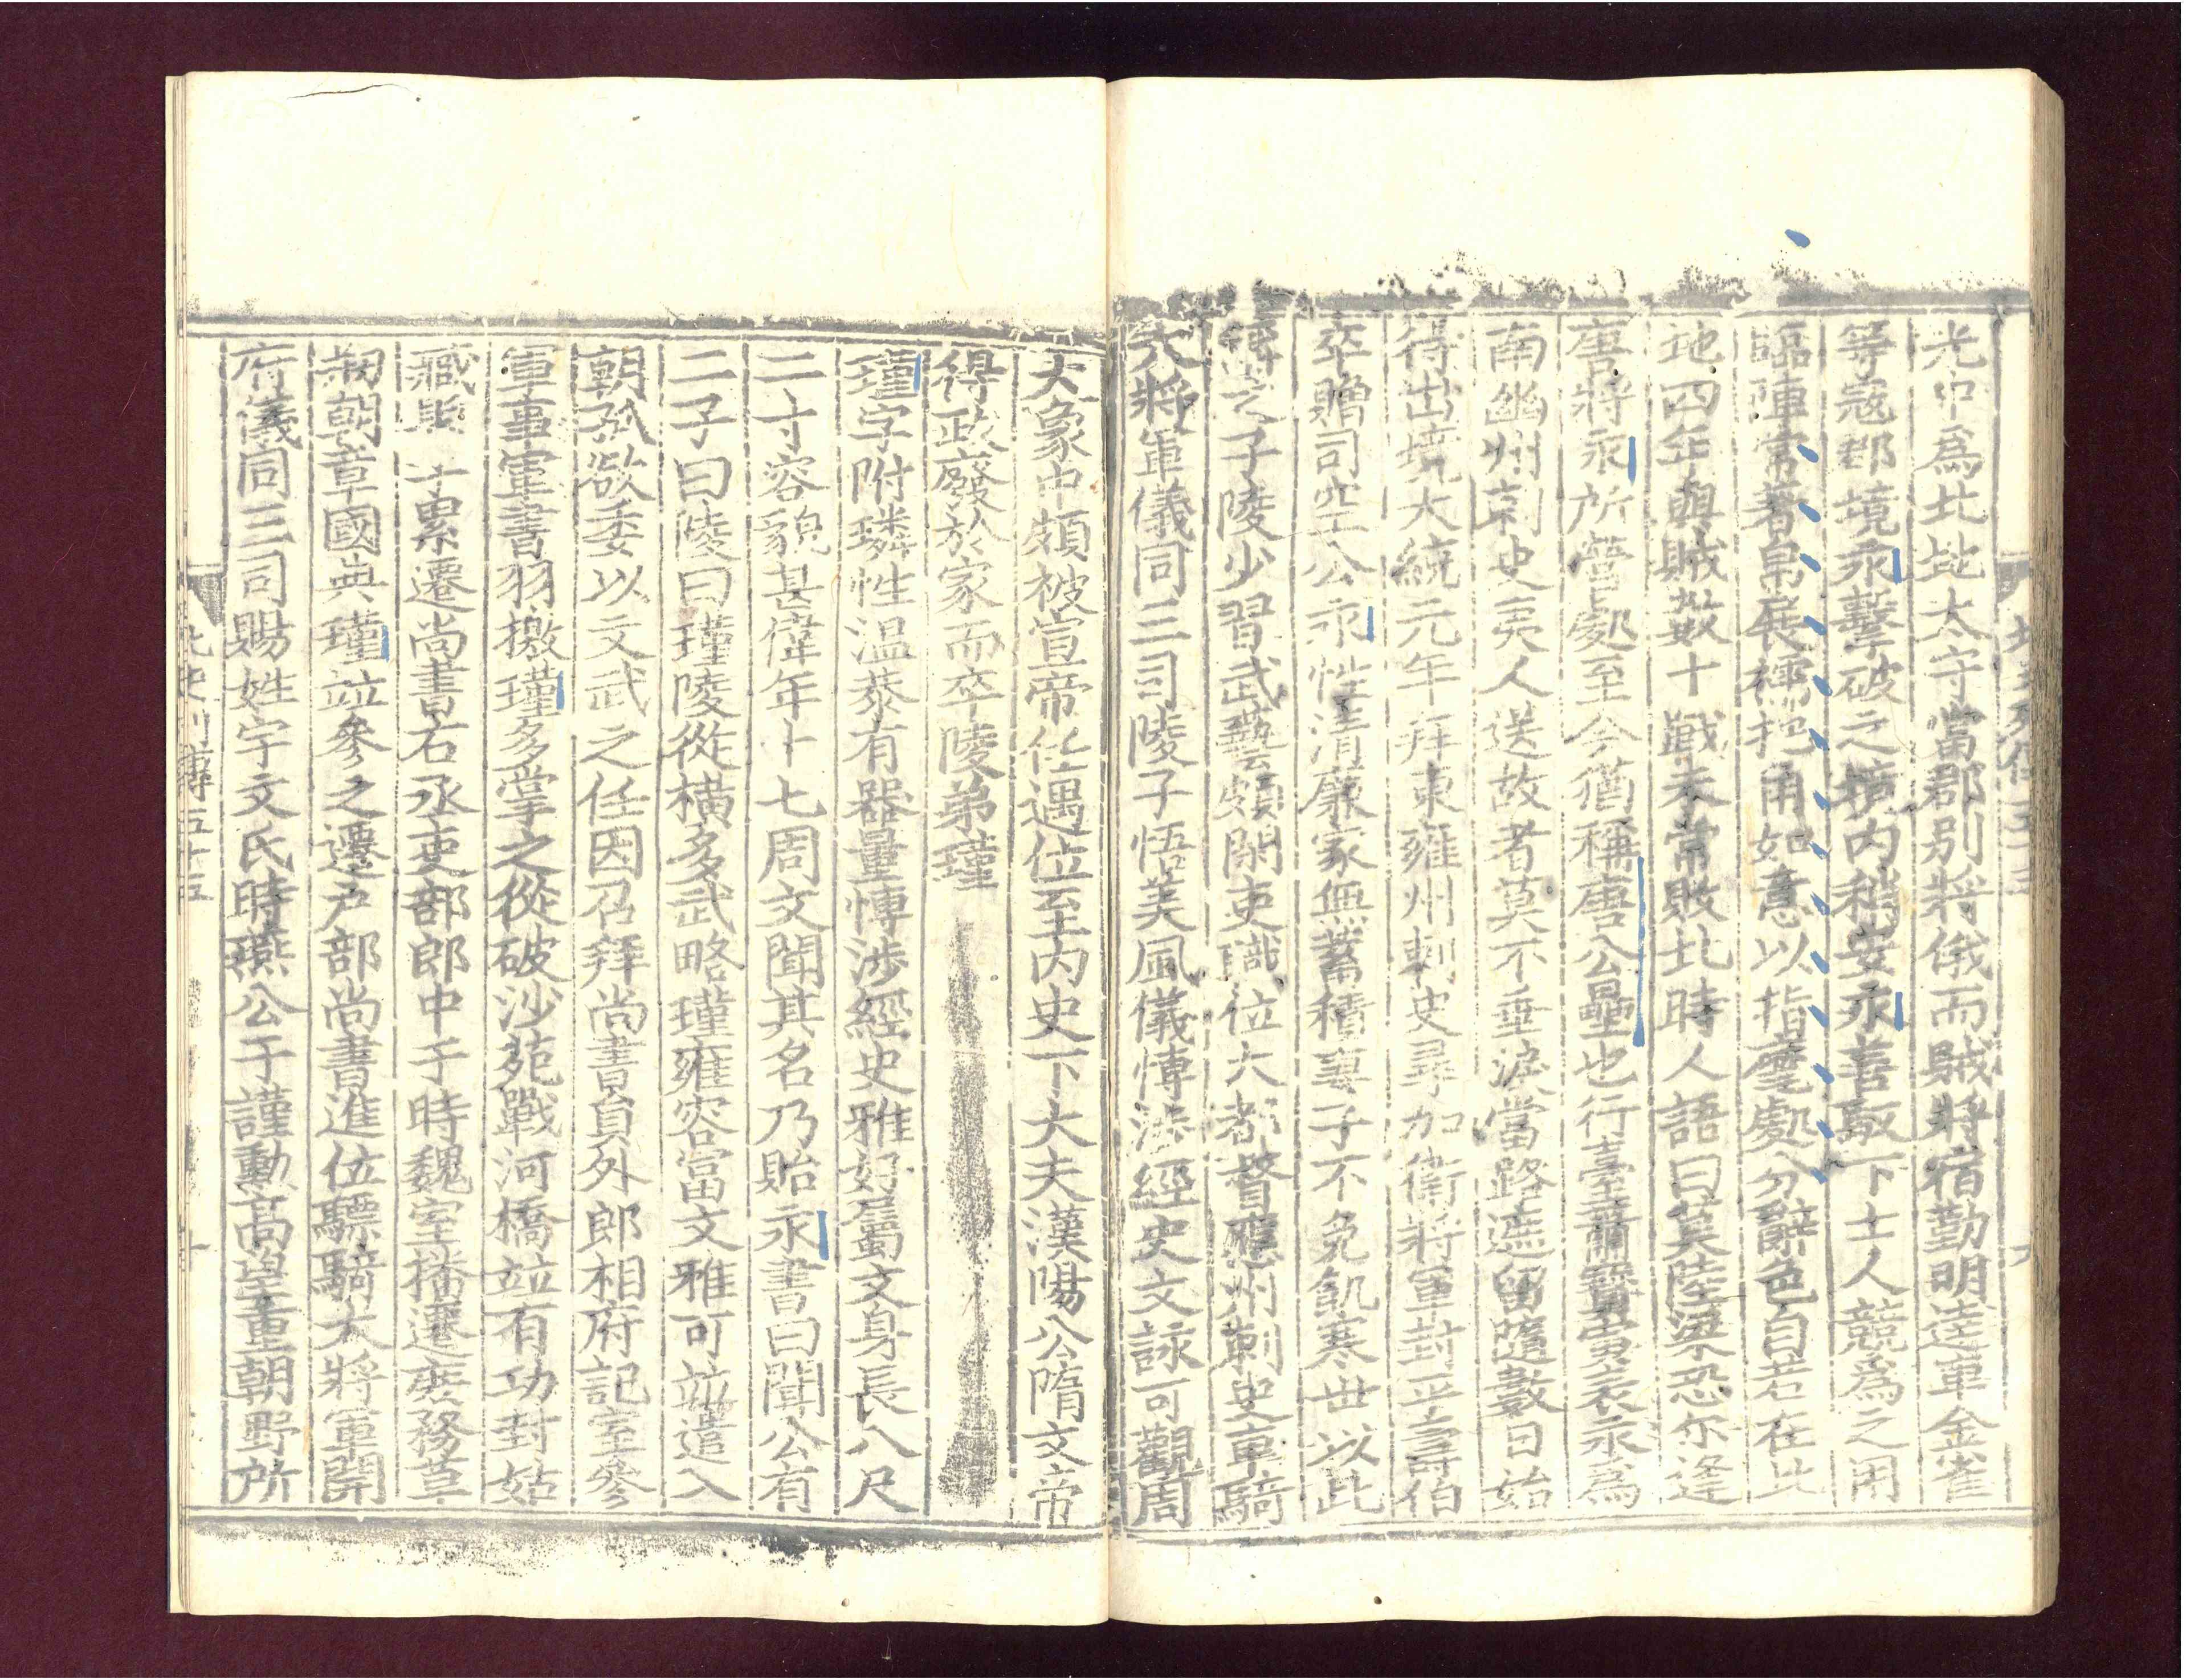 光中爲北地太守當郡別將俄而賊將宿勤明達車金雀
等寇郡境永擊破之境内稍安永善馭下士人競爲之用
臨陣常著帛裠襦把角如意以指麾處分辭色自若在北
地四年與賊數十戰未常敗北時人語曰莫陸梁恐尒逢
唐將永所營處至今猶稱唐公壘也行臺蕭寶夤表永爲
南幽州刺史夷人送故者莫不垂淚當路遮留隨數日始
得出境大統元年拜東雍州刺史尋加衛將軍封平壽伯
卒贈司空公永性清廉家無蓄積妻子不免飢寒世以此
稱之子陵少習武藝頗閑吏職位大都督應州刺史車騎
大將軍儀同三司陵子悟美風儀博涉經史文詠可觀周
大象中頗被宣帝任遇位至内史下大夫漢陽公隋文帝
得政廢於家而卒陵弟瑾
瑾字附璘性温恭有器量博涉經史雅好屬文身長八尺
二寸容貌甚偉年十七周文聞其名乃貽永書曰聞公有
二子曰陵曰瑾陵從橫多武略瑾雍容富文雅可竝遣入
朝孤欲委以文武之任因召拜尚書員外郎相府記室參
軍事軍書羽檄瑾多掌之從破沙苑戰河橋竝有功封姑
臧縣子累遷尚書右丞吏部郎中于時魏室播遷庶務草
刱朝章國典瑾竝參之遷戶部尚書進位驃騎大將軍開
府儀同三司賜姓宇文氏時燕公于謹勳高望重朝野所
北史列傳五十五